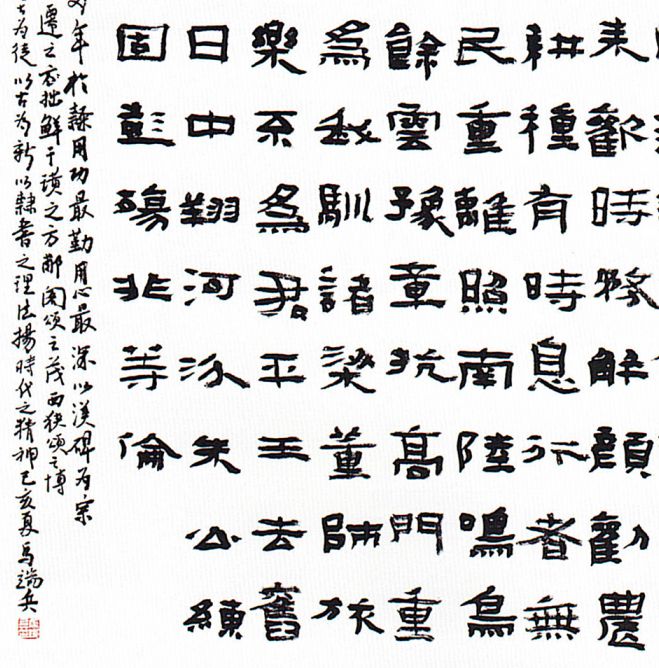 耒歡時務解顏勸農
耕種有時息行者無
民重離照南陸鳴鳥
餘雲豫章抗高門重
為我馴諸梁董師旅
樂不為君平王去舊
日中翔河汾朱公練
固彭殤非等倫
年於隸用功最勤用心最深以漢碑為宗
遷之古拙鮮于璜之方郙閣頌之茂西狹頌之博
古為徒以古為新以隸書之理法揚時代之精神己亥夏馬端兵